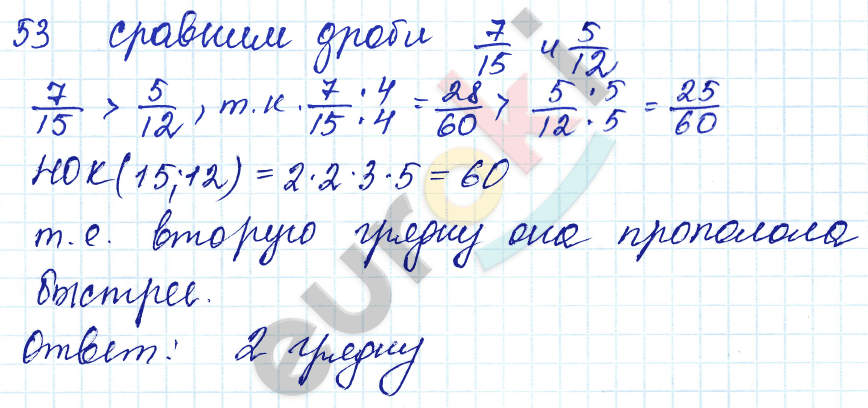 53 сравним дроби 7/15 и 5/12
7/15 > 5/12, т.к. 7·4/15·4 = 28/60 > 5·5/12·5 = 25/60
НОК(15;12) = 2·2·3·5 = 60
т.е. вторую грядку она прополола
быстрее.
Ответ: 2 грядку
euroki